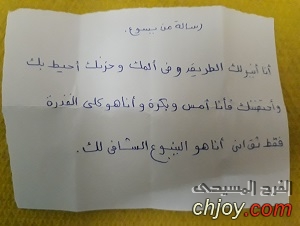 رسالة من يسوع.
أنا أنير لك الطريق وفى ألمك وحزنك أحيط بك
وأحتضنك فأنا أمس وبكرة وأنا هو كلى القدرة
فقط ثق انى أنا هو الينبوع الشافى لك.
الفرح المسيحى
chjoy.com